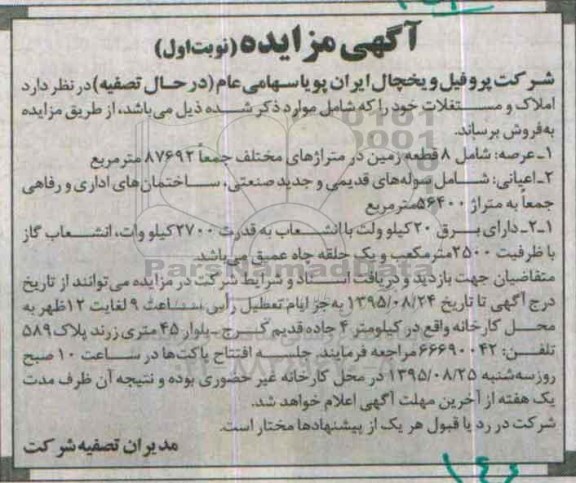 آگهی مزایده (نوبت اول)
شرکت پروفیل و یخچال ایران پویا سهامی عام (در حال تصفیه) در نظر دارد
املاک و مستغلات خود را که شامل موارد ذکر شده ذیل می‌باشد، از طریق مزایده
به فروش برساند.
۱ـ عرصه: شامل ۸ قطعه زمین در متراژهای مختلف جمعاً ۸۷۶۹۲ مترمربع
۲ـ اعیانی: شامل سوله‌های قدیمی و جدید صنعتی، ساختمان‌های اداری و رفاهی
جمعاً به متراژ ۵۶۴۰۰ مترمربع
۲ـ۱ـ دارای برق ۲۰ کیلو ولت با انشعاب به قدرت ۲۷۰۰ کیلو وات، انشعاب گاز
با ظرفیت ۲۵۰۰ مترمکعب و یک حلقه چاه عمیق می‌باشد.
متقاضیان جهت بازدید و دریافت اسناد و شرایط شرکت در مزایده می‌توانند از تاریخ
درج آگهی تا تاریخ ۱۳۹۵/۰۸/۲۴ به جز ایام تعطیل رأس ساعت ۹ لغایت ۱۲ ظهر به
محل کارخانه واقع در کیلومتر ۴ جاده قدیم کرج ـ بلوار ۴۵ متری زرند پلاک ۵۸۹
تلفن: ۶۶۶۹۰۰۴۲ مراجعه فرمایند. جلسه افتتاح پاکت‌ها در ساعت ۱۰ صبح
روز سه‌شنبه ۱۳۹۵/۰۸/۲۵ در محل کارخانه غیر حضوری بوده و نتیجه آن ظرف مدت
یک هفته از آخرین مهلت آگهی اعلام خواهد شد.
شرکت در رد یا قبول هر یک از پیشنهادها مختار است.
مدیران تصفیه شرکت
ParsNamadData